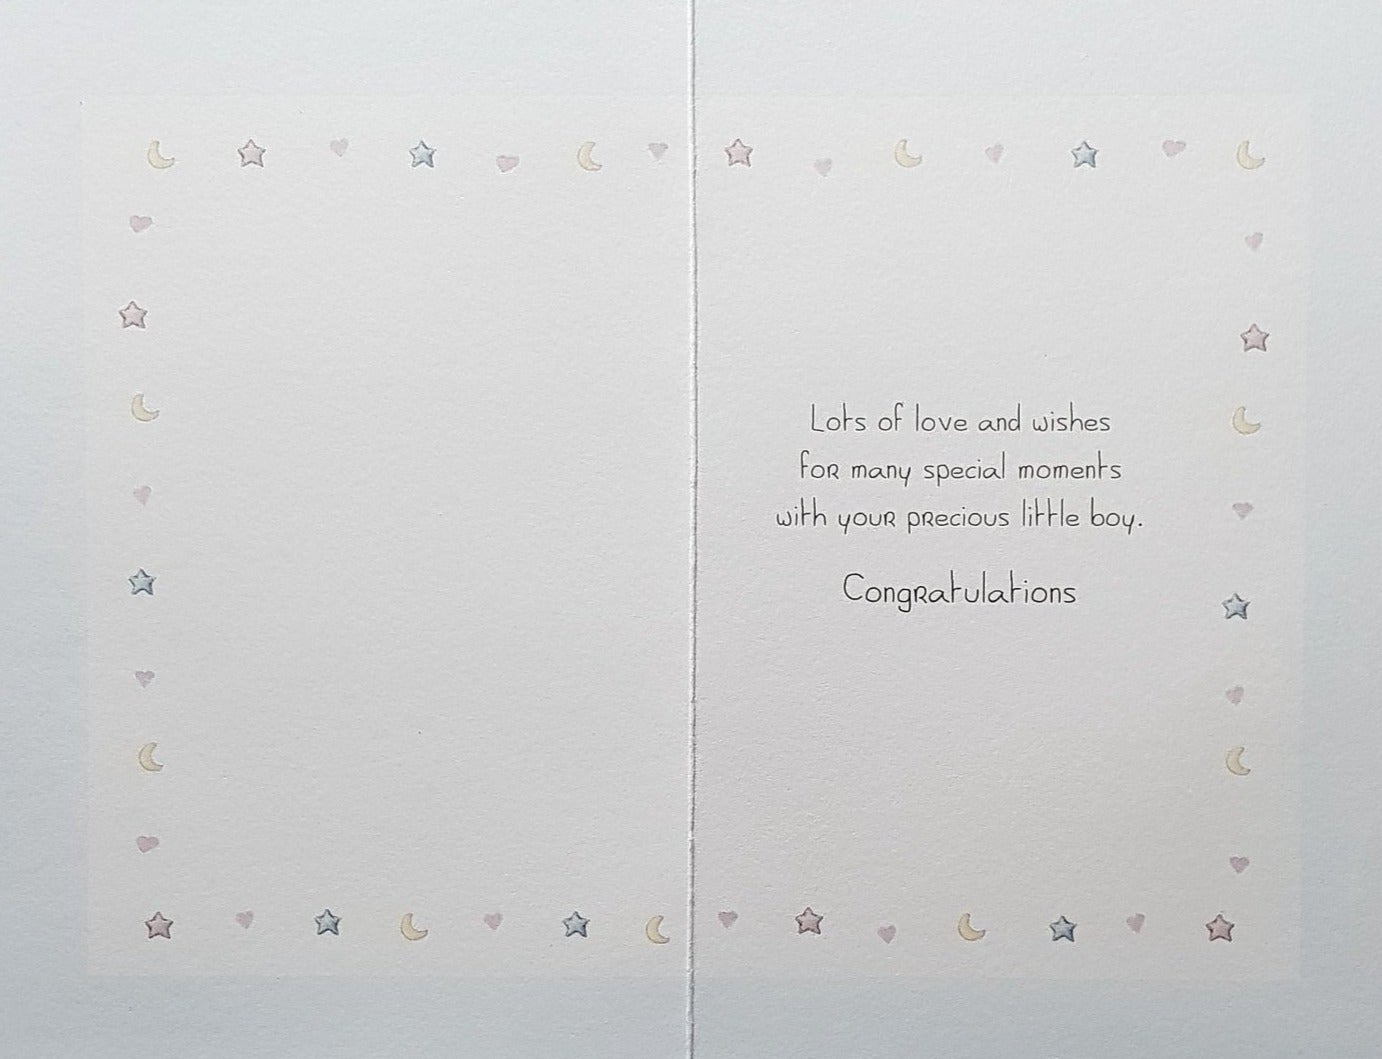 Lots of love and wishes
for many special moments
with your precious little boy.
Congratulations